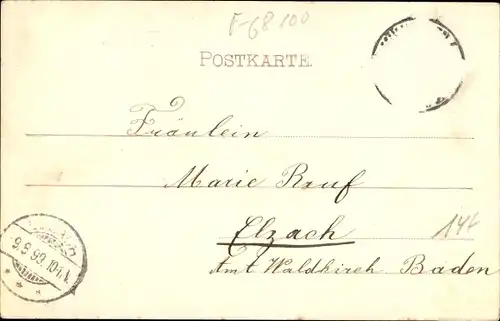 F-68 100
POSTKARTE.
Fräulein
Marie Ruf
Elzach
144
Amt Waldkirch Baden
9.9.99. 10-11